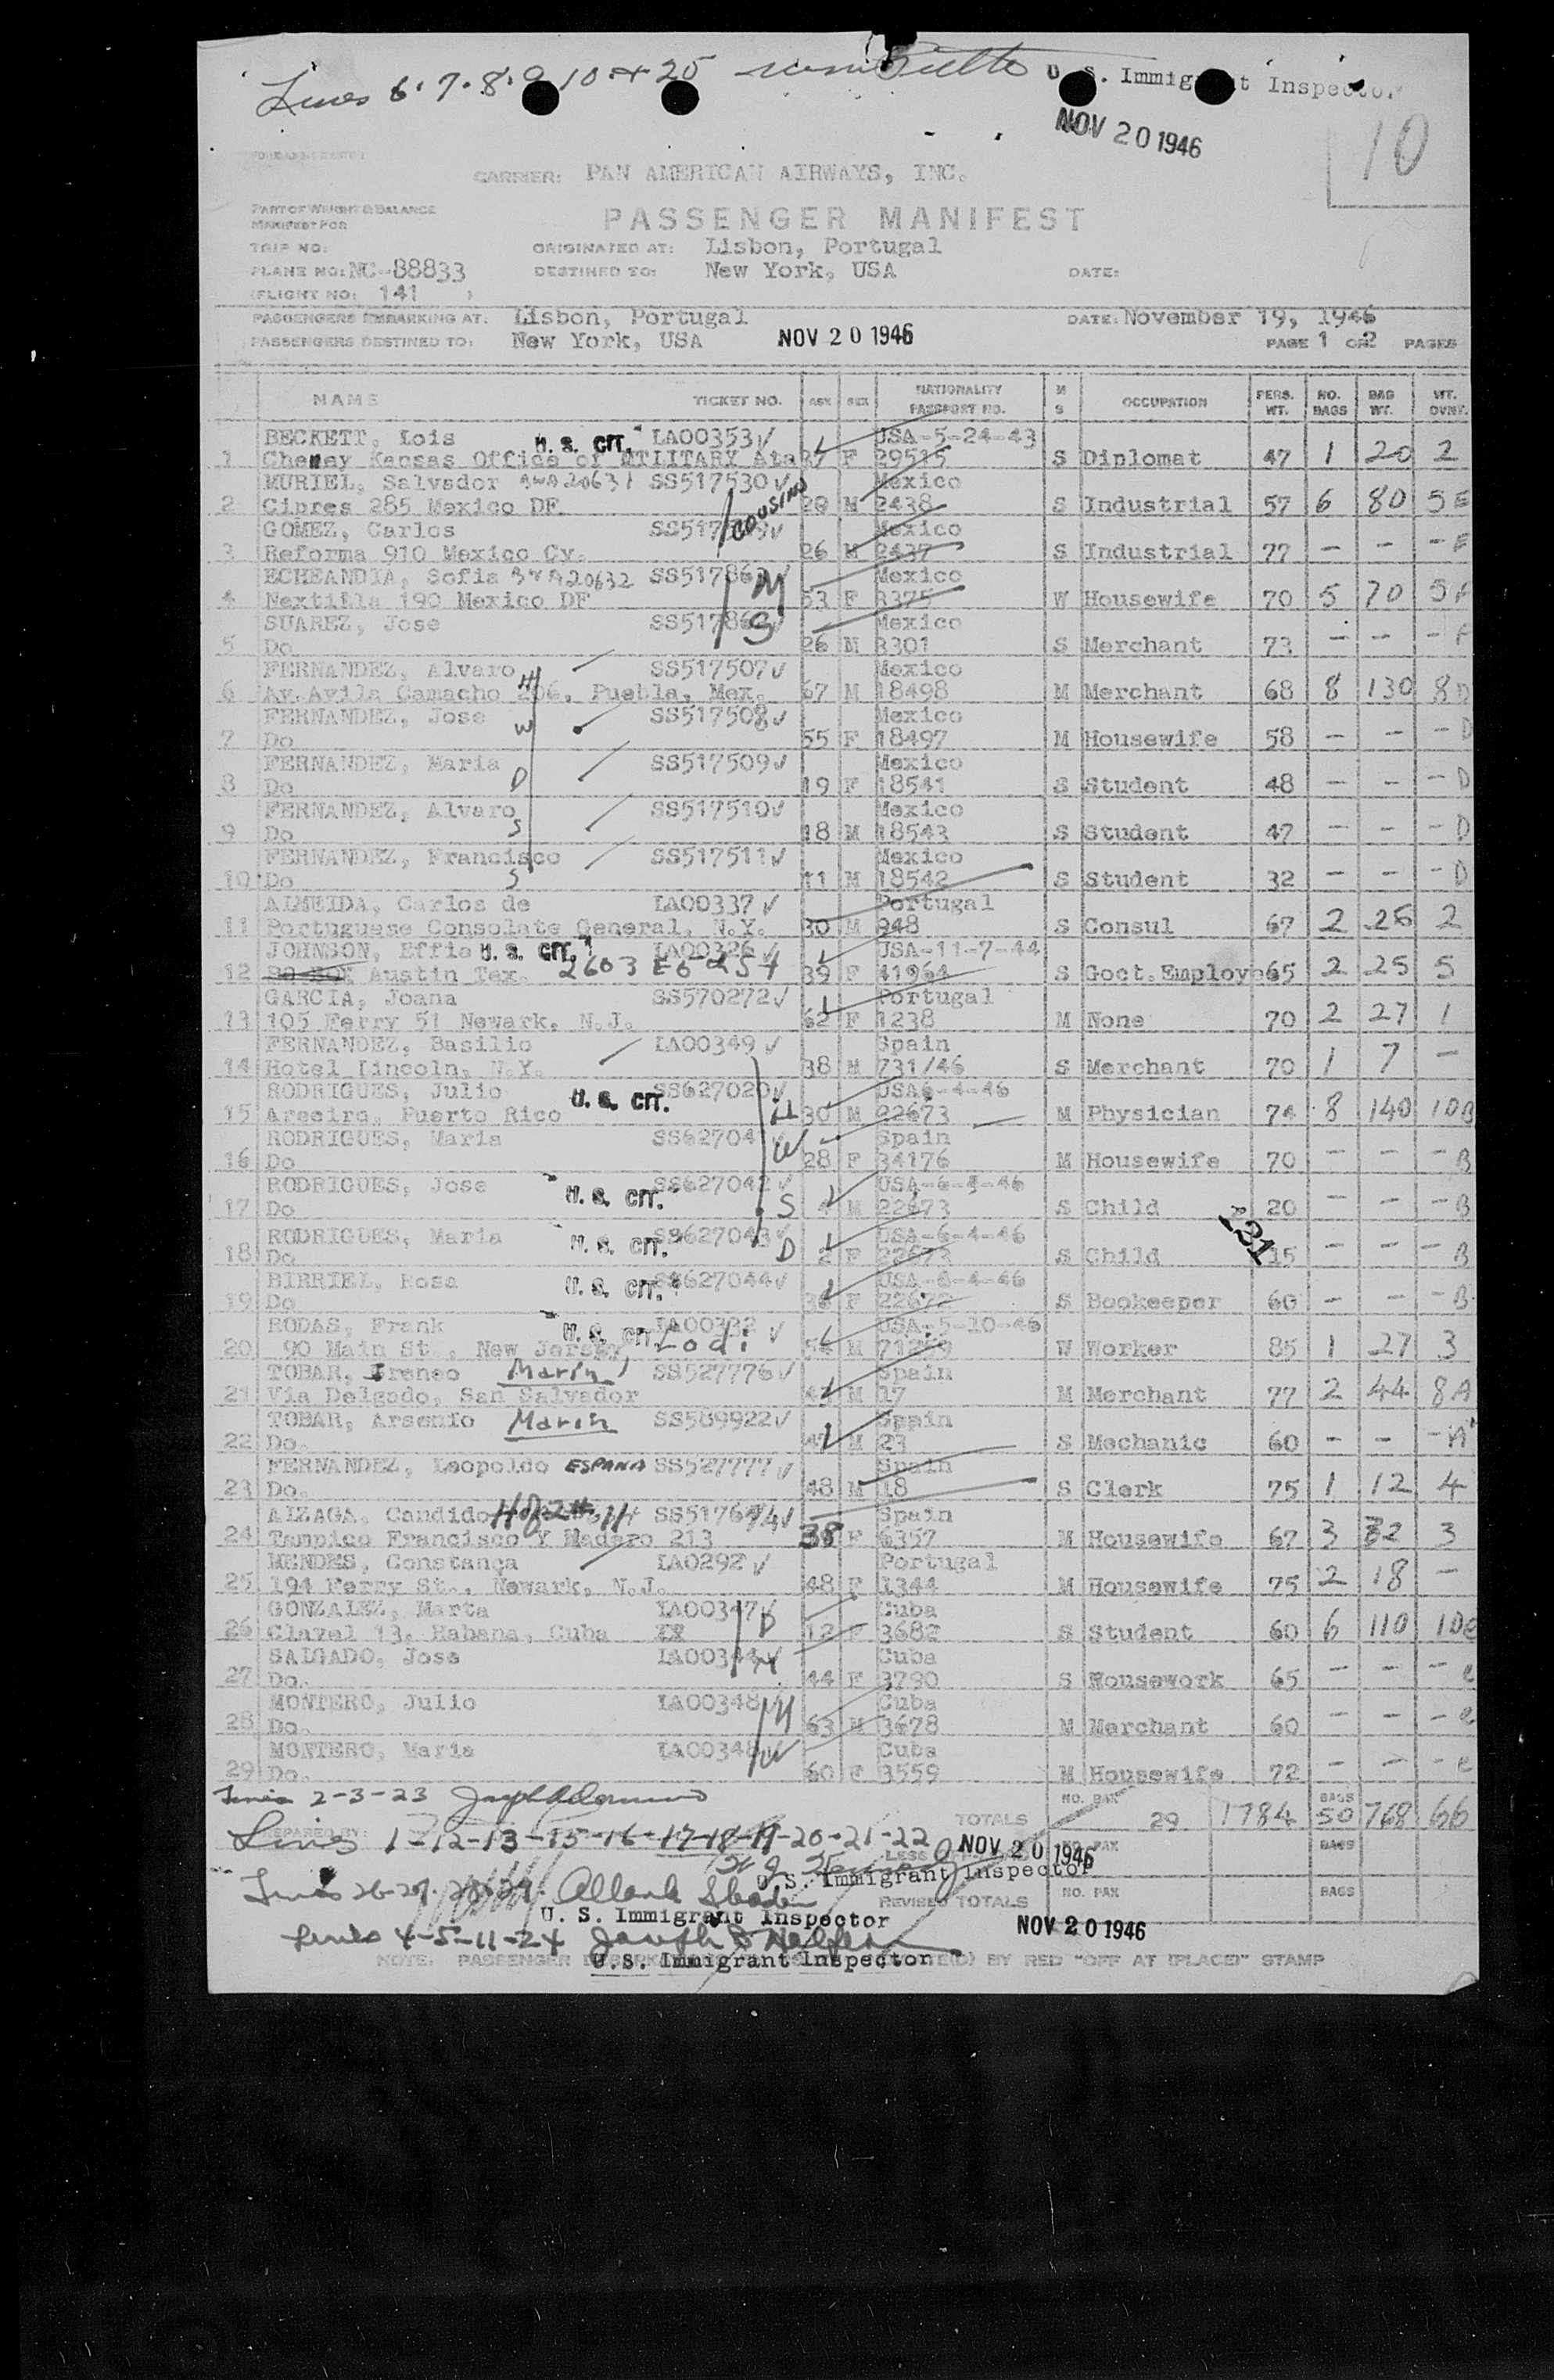 Lines 6.7.8.9 10 + 25 U. S. Immigrant Inspector
NOV 20 1946
10
CARRIER: PAN AMERICAN AIRWAYS, INC.
PART OF WEIGHT & BALANCE
MANIFEST FOR
PASSENGER MANIFEST
TRIP NO: ORIGINATED AT: Lisbon, Portugal
PLANE NO: NC-88833 DESTINED TO: New York, USA DATE:
(FLIGHT NO: 141 )
PASSENGERS EMBARKING AT: Lisbon, Portugal DATE: November 19, 1946
PASSENGERS DESTINED TO: New York, USA NOV 20 1946 PAGE 1 OF 2 PAGES
NAME TICKET NO. AGE SEX NATIONALITY PASSPORT NO. M S OCCUPATION PERS. WT. NO. BAGS BAG WT. WT. OVNT.
BECKETT, Lois U. S. CIT. LA00353 USA-5-24-43
1 Cheney Kansas Office of MTLITARY Ata 27 F 29515 S Diplomat 47 1 20 2
MURIEL, Salvador SS517530 Mexico
2 Cipres 285 Mexico DF. COUSINS 29 M 2438 S Industrial 57 6 80 5 F
GOMEZ, Carlos Mexico
3 Reforma 910 Mexico Cy. 26 M 2437 S Industrial 77 - - - F
ECHEANDIA, Sofia Mexico
4 Nextitla 190 Mexico DF M 53 F 3375 W Housewife 70 5 70 5 F
SUAREZ, Jose Mexico
5 Do. S 26 M 3301 S Merchant 73 - - - F
FERNANDEZ, Alvaro SS517507 Mexico
6 Av. Avila Camacho 206, Puebla, Mex. H 67 M 18498 M Merchant 68 8 130 8 D
FERNANDEZ, Jose SS517508 Mexico
7 Do W 55 F 18497 M Housewife 58 - - - D
FERNANDEZ, Maria SS517509 Mexico
8 Do D 19 F 18541 S Student 48 - - - D
FERNANDEZ, Alvaro SS517510 Mexico
9 Do S 18 M 18543 S Student 47 - - - D
FERNANDEZ, Francisco SS517511 Mexico
10 Do S 11 M 18542 S Student 32 - - - D
ALMEIDA, Carlos de LA00337 Portugal
11 Portuguese Consolate General, N.Y. 30 M 948 S Consul 67 2 26 2
JOHNSON, Effie U. S. CIT. LA00326 USA-11-7-44
12 Austin Tex. 2603 E 6 St 39 F 41964 S Goct. Employe 65 2 25 5
GARCIA, Joana SS570272 Portugal
13 105 Ferry 51 Newark, N.J. 62 F 1238 M None 70 2 27 1
FERNANDEZ, Basilio LA00349 Spain
14 Hotel Lincoln, N.Y. 38 M 731/46 S Merchant 70 1 7 -
RODRIGUES, Julio U. S. CIT. SS627020 USA6-4-46
15 Areciro, Puerto Rico H 30 M 22673 M Physician 74 8 140 10 B
RODRIGUES, Maria SS627041 Spain
16 Do W 28 F 34176 M Housewife 70 - - - B
RODRIGUES, Jose U. S. CIT. SS627042 USA-6-4-46
17 Do S 4 M 22673 S Child 20 - - - B
RODRIGUES, Maria U. S. CIT. SS627043 USA-6-4-46
18 Do D 2 F 22673 S Child 15 - - - B
231
BIRRIEL, Rosa U. S. CIT. SS627044 USA-6-4-46
19 Do F 22672 S Bookeeper 60 - - - B
RODAS, Frank U. S. CIT. LA00332 USA-5-10-46
20 90 Main St., New Jersey Lodi M W Worker 85 1 27 3
TOBAR, Ireneo Marin SS527776 Spain
21 Via Delgado, San Salvador M 17 M Merchant 77 2 44 8 A
TOBAR, Arsenio Marin SS509922 Spain
22 Do. M 23 S Mechanic 60 - - - A
FERNANDEZ, Leopoldo ESPAÑA SS527777 Spain
23 Do. 48 M 18 S Clerk 75 1 12 4
AIZAGA, Candido Spain
24 Tampico Francisco Y Madero 213 38 F 6357 M Housewife 67 3 32 3
MENDES, Constança LA0292 Portugal
25 194 Ferry St., Newark, N.J. 48 F 1344 M Housewife 75 2 18 -
GONZALEZ, Marta LA00347 Cuba
26 Clavel 13, Habana, Cuba XX D 12 F 3682 S Student 60 6 110 10 e
SALGADO, Jose LA00344 Cuba
27 Do. M 44 F 3790 S Housework 65 - - - e
MONTERO, Julio LA00348 Cuba
28 Do. H 63 M 3678 M Merchant 60 - - - e
MONTERO, Maria LA00348 Cuba
29 Do. W 60 F 3559 M Housewife 72 - - - e
Lines 2-3-23
TOTALS NO. PAX 29 1784 BAGS 50 768 66
PREPARED BY:
Lines 1-12-13-15-16-17-18-19-20-21-22 NOV 20 1946 NO. PAX BAGS
U. S. Immigrant Inspector
Lines 26-27-28-29
REVISED TOTALS NO. PAX BAGS
U. S. Immigrant Inspector
NOV 20 1946
Lines 4-5-11-24 Joseph
U.S. Immigrant Inspector
NOTE: PASSENGER BY RED "OFF AT (PLACE)" STAMP